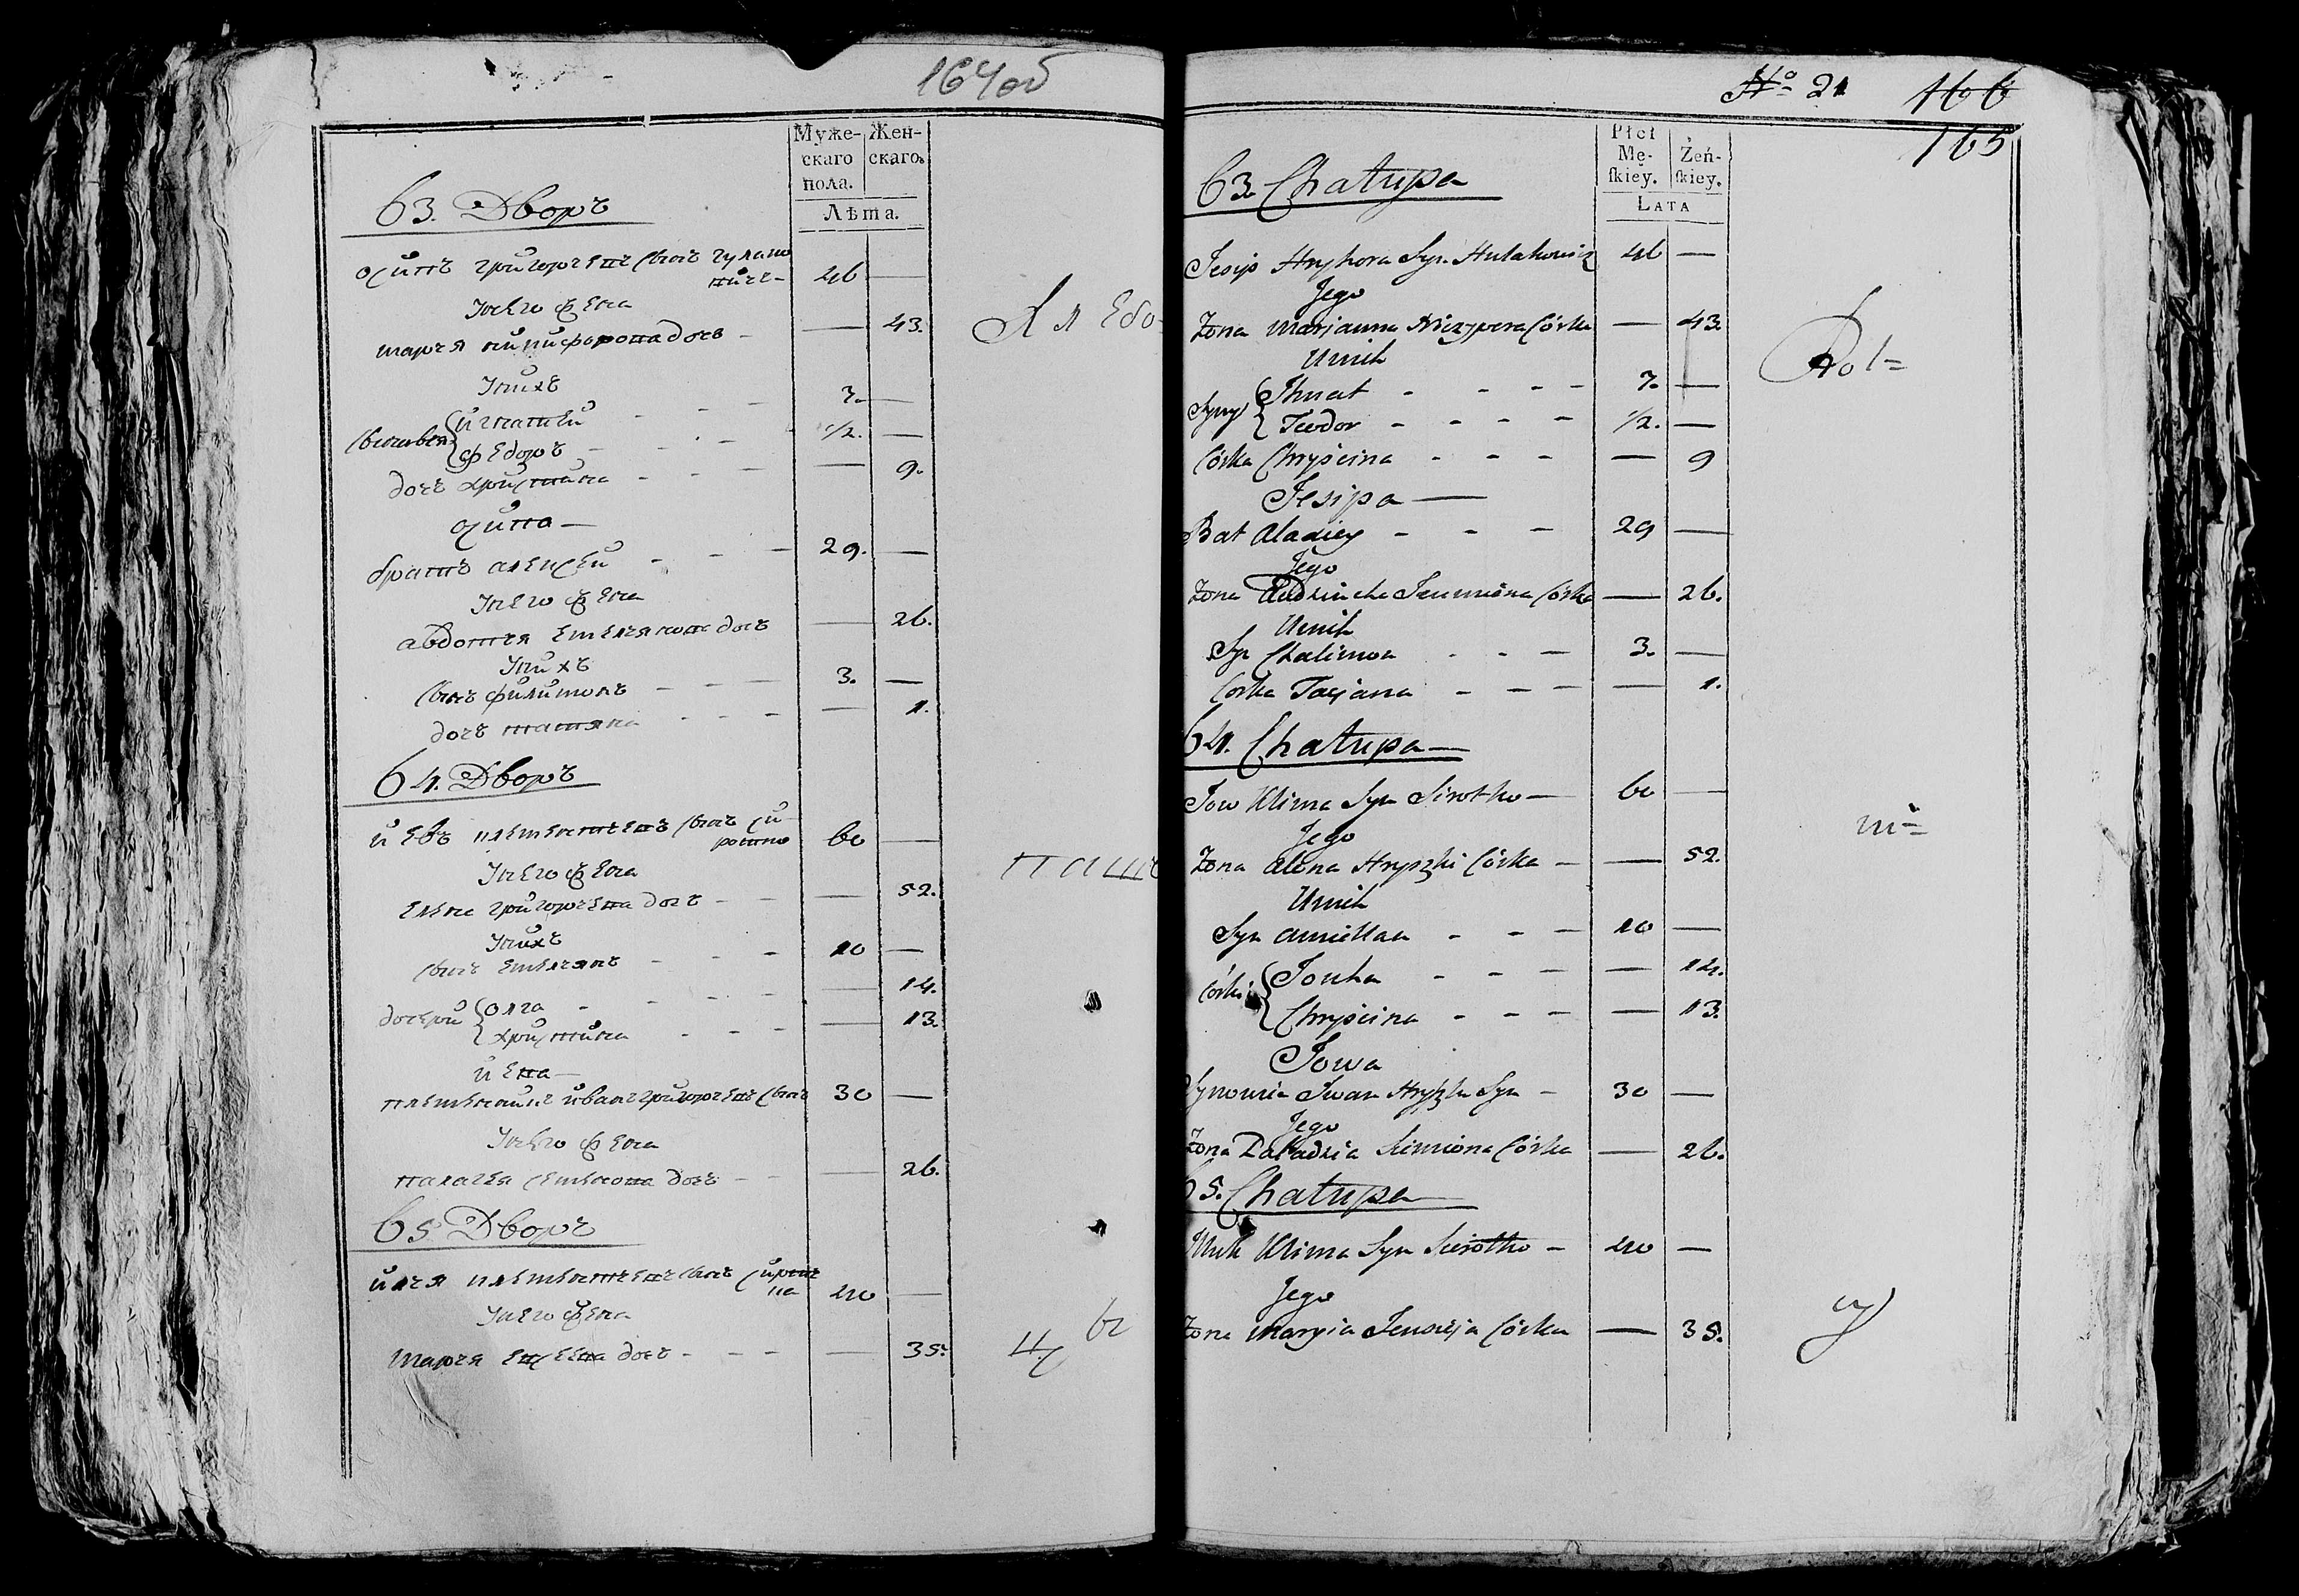 164 об
Муже- Жен-
скаго скаго
пола.
Лѣта.
63. Дворъ
Осипъ Григорьевъ сынъ Гулако
вичъ - 46 —
У него жена
марья никифорова дочь - — 43.
У нихъ
сыновья { игнатей - - - 7. —
федоръ - - - 1/2. —
дочь христина - - - — 9.
осипа —
братъ алексей - - - 29. —
У него жена
авдотья емельянова дочь — 26.
У нихъ
сынъ филимонъ - - - 3. —
дочь татяна - - - — 1.
64. Дворъ
иевъ клементьевъ сынъ си
ротко 60 —
У него жена
елена григорьева дочь - - — 52.
У нихъ
сынъ емельянъ - - - 10 —
дочери { олга - - - — 14.
христина - - - — 13.
иева —
племенникъ иванъ григорьевъ сынъ 30 —
У него жена
палагея семенова дочь - - — 26.
65 Дворъ
илья клементьевъ сынъ сирот
ка 40 —
У него жена
марья евсеева дочь - - - — 35.
№ 21 166
165
Płci
Mę- Żeń-
skiey. skiey.
LATA
63. Chałupa
Jesip Hryhora Syn Hulakowicz 46 —
Jego
Żona Marjanna Niczypera Córka — 43.
U nich
Syny { Ihnat - - - - 7. —
Teodor - - - - 1/2. —
Córka Chryścina - - - — 9
Jesipa —
Bat Aladiey - - - 29 —
Jego
Żona Audziucha Jaumiena Córka — 26.
U nich
Syn Chalimon - - - 3. —
Corka Tacjana - - - — 1.
64. Chałupa —
Jow Klima Syn Sirotko — 60 —
Jego
Żona Alena Hryszki Córka — — 52.
U nich
Syn Amiellan - - - 10 —
Córki { Jouha - - - — 14.
Chryścina - - - — 13.
Jowa
Synowiec Iwan Hryszki Syn - 30 —
Jego
Żona Paładzia Simiona Córka — 26.
65. Chałupa
Iluk Klima Syn Sierotko - 40 —
Jego
Żona Maryia Jewsieja Córka — 35.